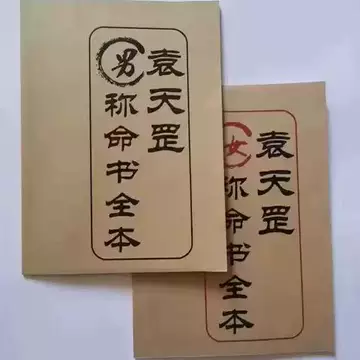 袁天罡
男
称命书全本
袁天罡
女
称命书全本